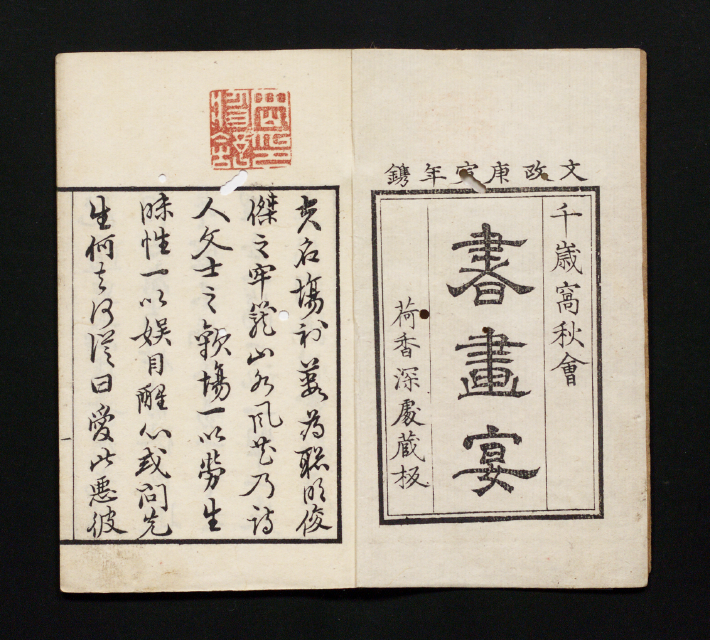 文政庚寅年鐫
千歳窩秋會
書畫宴
荷香深處蔵板
夫名場利藪為聡明俊
傑之牢籠山水風花乃詩
人文士之歓場一以勞生
昧性一以娯目醒心或問先
生何去何從曰愛此悪彼